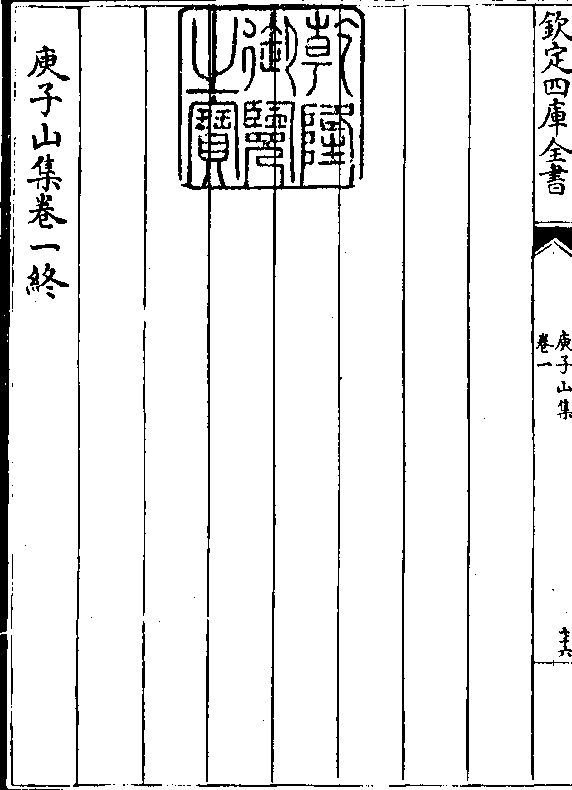 欽定四庫全書
庾子山集
卷一
乾隆
御覽
之寶
庾子山集卷一終